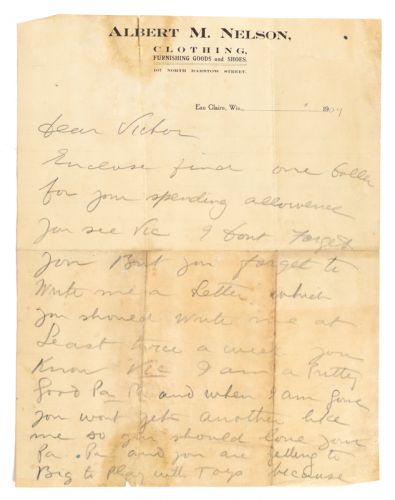 ALBERT M. NELSON,
CLOTHING,
FURNISHING GOODS and SHOES.
107 NORTH BARSTOW STREET.
Eau Claire, Wis., 1904
Dear Victor
Encluse find one Doller
for your spending allowence
You see Vic I Dont Forget
You But you forget to
Write me a Letter which
you should write me at
Least twice a week you
Know Vic I am a Pritty
Good Pa Pa and when I am gone
you wont get another like
me so you should love your
Pa. Pa and you are getting to
Big to Play with Toys because